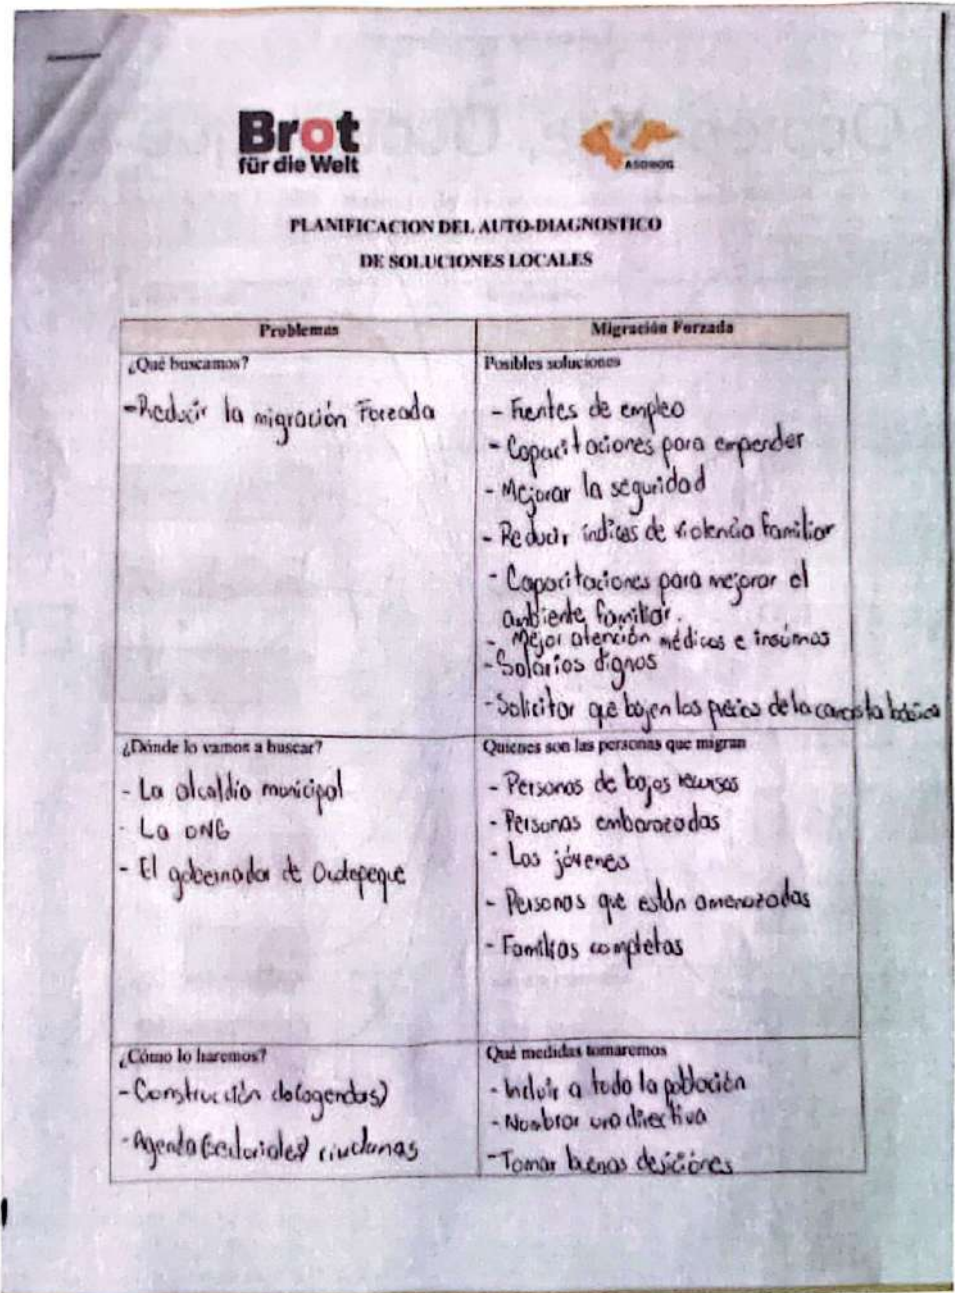 Brot
für die Welt
ASONOG
PLANIFICACION DEL AUTO-DIAGNOSTICO
DE SOLUCIONES LOCALES
Problemas
Migración Forzada
¿Qué buscamos?
-Reducir la migración Forzada
Posibles soluciones
- Fuentes de empleo
- Capacitaciones para emperder
- Mejorar la seguridad
- Reducir índices de violencia familiar
- Capacitaciones para mejorar el
ambiente familiar.
- Mejor atención médicas e insumos
- Salarios dignos
- Solicitar que bajen los precios de la canasta básica
¿Dónde lo vamos a buscar?
- La alcaldía municipal
- La ONG
- El gobernador de Ocotepeque
Quienes son las personas que migran
- Personas de bajos recursos
- Personas embarazadas
- Los jóvenes
- Personas que están amenazadas
- Familias completas
¿Cómo lo haremos?
- Construcción (agendas)
- Agenda (sectoriales)
Qué medidas tomaremos
- Incluir a toda la población
- Nombrar una directiva
- Tomar buenas desiciones